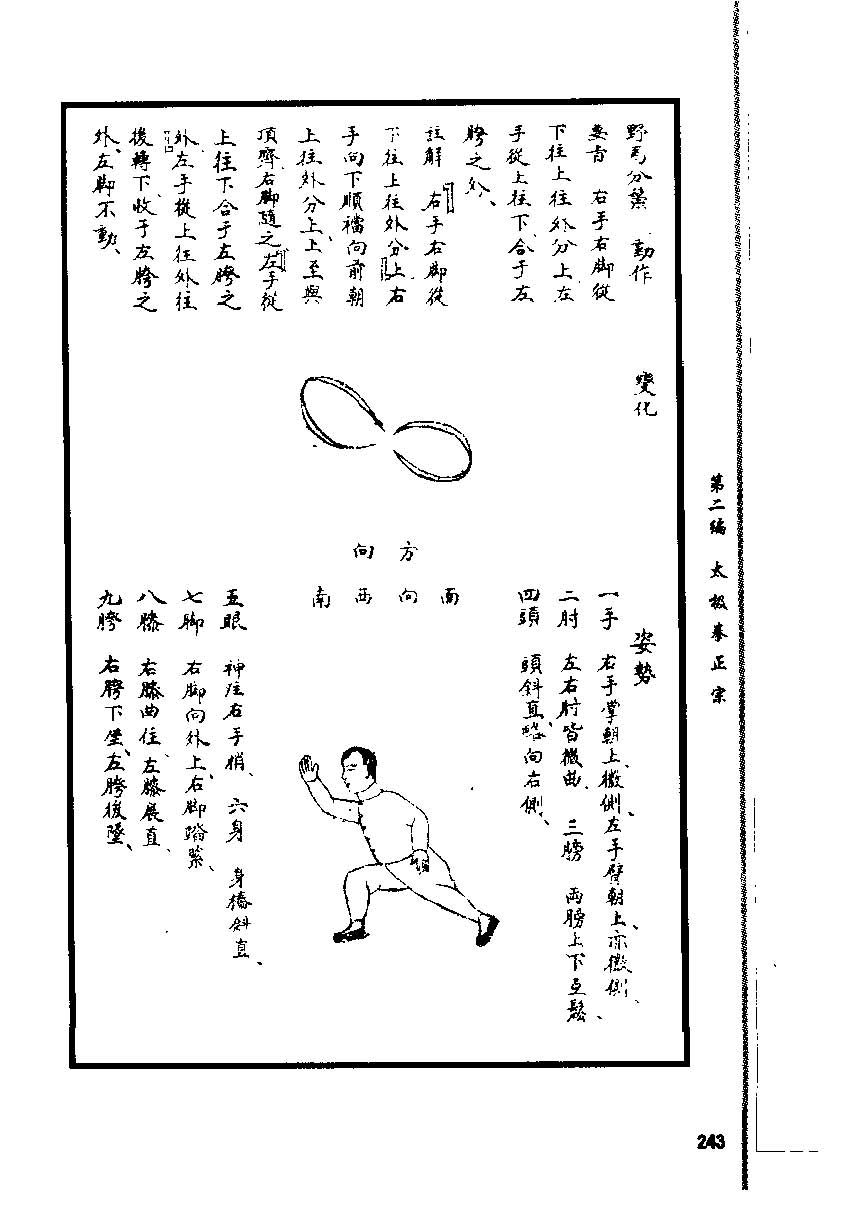 野馬分鬃 動作
要旨 右手右脚從
下往上往外分上左
手從上往下合于左
胯之外、
註解 右手右脚從
下往上往外分上右
手向下順襠向前朝
上往外分上上至與
頂齊右脚隨之左手從
上往下合于左胯之
外左手從上往外往
後轉下收于左胯之
外、左脚不動、
變化
方向
面向西南
姿勢
一手 右手掌朝上、微側、左手臂朝上、亦微側、
二肘 左右肘皆微曲 三膀 両膀上下互鬆、
四頭 頭斜直、略向右側、
五眼 神注右手梢、六身 身樁斜直、
七脚 右脚向外上、右脚踏緊、
八膝 右膝曲住、左膝展直、
九胯 右胯下坐、左胯後墜、
第二編 太极拳正宗
243